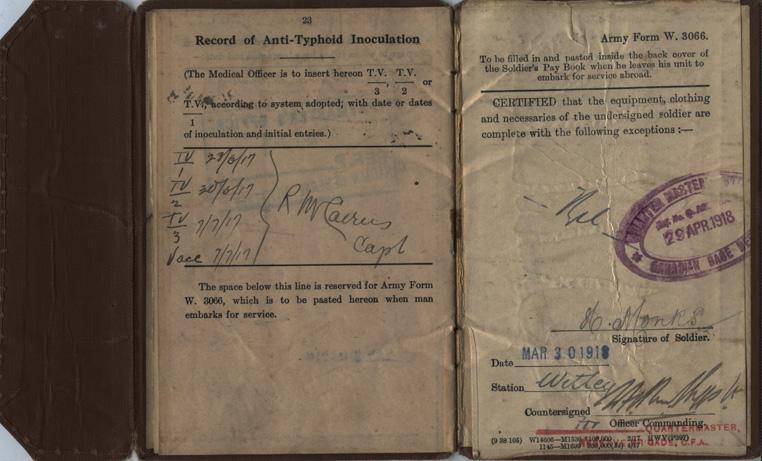 23
Record of Anti-Typhoid Inoculation
(The Medical Officer is to insert hereon T.V./3, T.V./2 or
T.V./1, according to system adopted; with date or dates
of inoculation and initial entries.)
TV/1
TV/2
TV/3 7/7/17
Vacc 7/7/17
Capt
The space below this line is reserved for Army Form
W. 3066, which is to be pasted hereon when man
embarks for service.
Army Form W. 3066.
To be filled in and pasted inside the back cover of
the Soldier's Pay Book when he leaves his unit to
embark for service abroad.
CERTIFIED that the equipment, clothing
and necessaries of the undersigned soldier are
complete with the following exceptions :—
Nil
QUARTER MASTER
29 APR. 1918
CANADIAN
H. Monks
Signature of Soldier.
Date MAR 30 1918
Station Witley
Countersigned
for Officer Commanding.
QUARTERMASTER,
C.F.A.